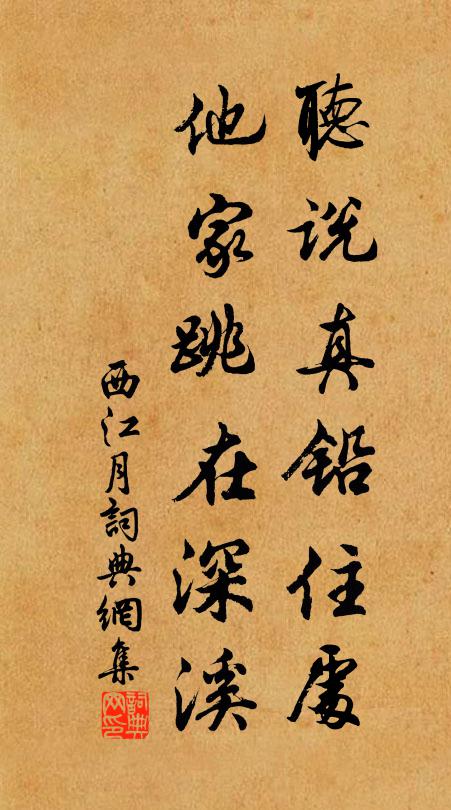 聽説真鉛住處
他家跳在深溪
西江月詞典網集
詞典网印